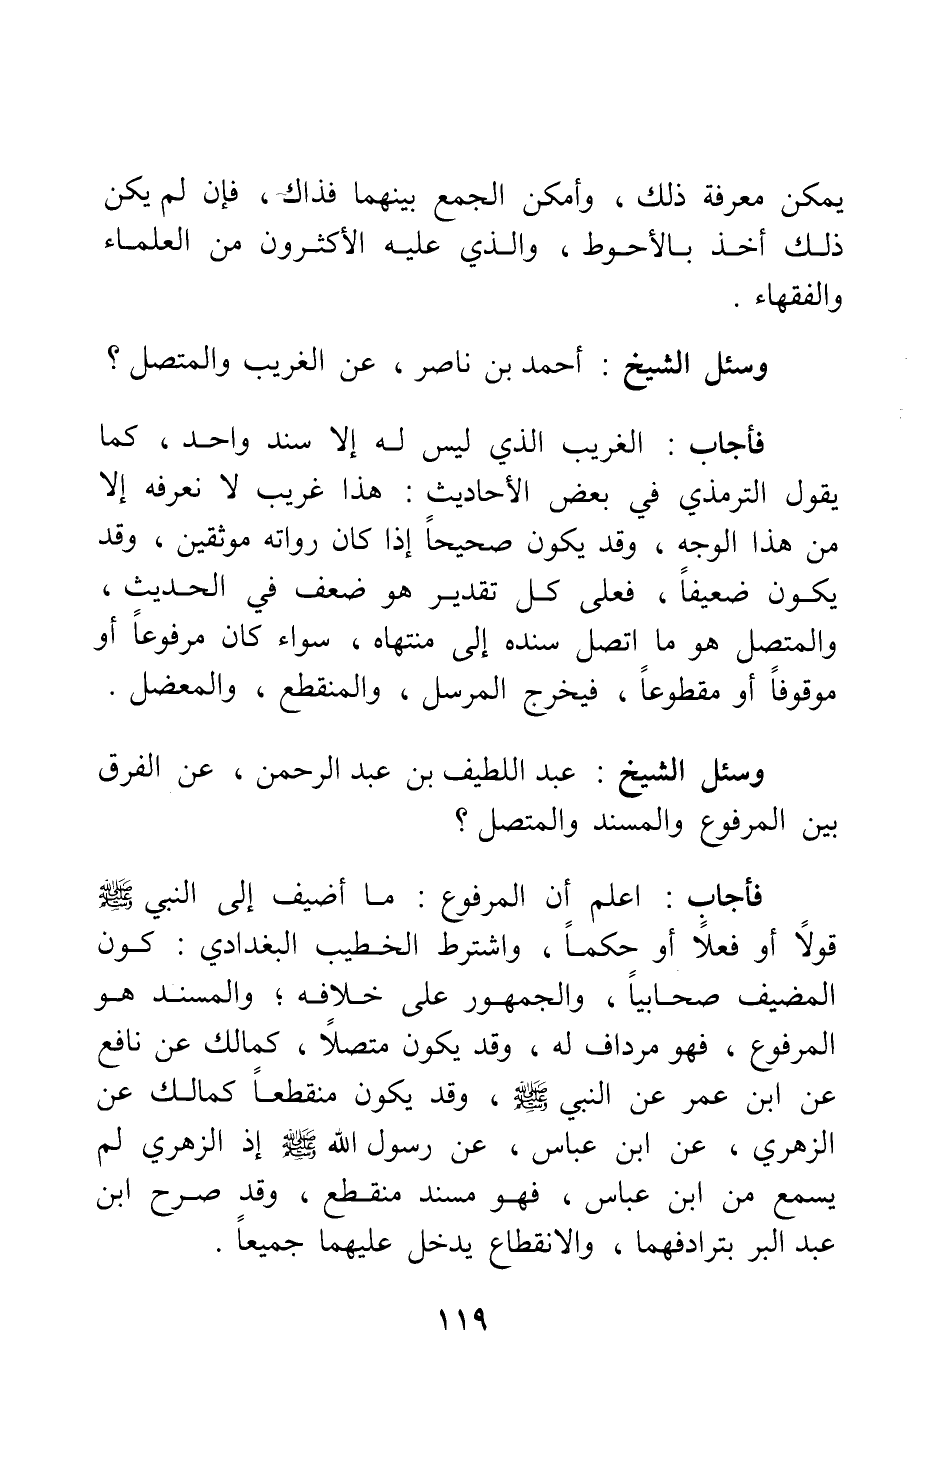 يمكن معرفة ذلك ، وأمكن الجمع بينهما فذاك ، فإن لم يكن
ذلك أخذ بالأحوط ، والذي عليه الأكثرون من العلماء
والفقهاء .
وسئل الشيخ : أحمد بن ناصر ، عن الغريب والمتصل ؟
فأجاب : الغريب الذي ليس له إلا سند واحد ، كما
يقول الترمذي في بعض الأحاديث : هذا غريب لا نعرفه إلا
من هذا الوجه ، وقد يكون صحيحاً إذا كان رواته موثقين ، وقد
يكون ضعيفاً ، فعلى كل تقدير هو ضعف في الحديث ،
والمتصل هو ما اتصل سنده إلى منتهاه ، سواء كان مرفوعاً أو
موقوفاً أو مقطوعاً ، فيخرج المرسل ، والمنقطع ، والمعضل .
وسئل الشيخ : عبد اللطيف بن عبد الرحمن ، عن الفرق
بين المرفوع والمسند والمتصل ؟
فأجاب : اعلم أن المرفوع : ما أضيف إلى النبي ﷺ
قولاً أو فعلاً أو حكماً ، واشترط الخطيب البغدادي : كون
المضيف صحابياً ، والجمهور على خلافه ؛ والمسند هو
المرفوع ، فهو مرداف له ، وقد يكون متصلاً ، كمالك عن نافع
عن ابن عمر عن النبي ﷺ ، وقد يكون منقطعاً كمالك عن
الزهري ، عن ابن عباس ، عن رسول الله ﷺ إذ الزهري لم
يسمع من ابن عباس ، فهو مسند منقطع ، وقد صرح ابن
عبد البر بترادفهما ، والانقطاع يدخل عليهما جميعاً .
١١٩